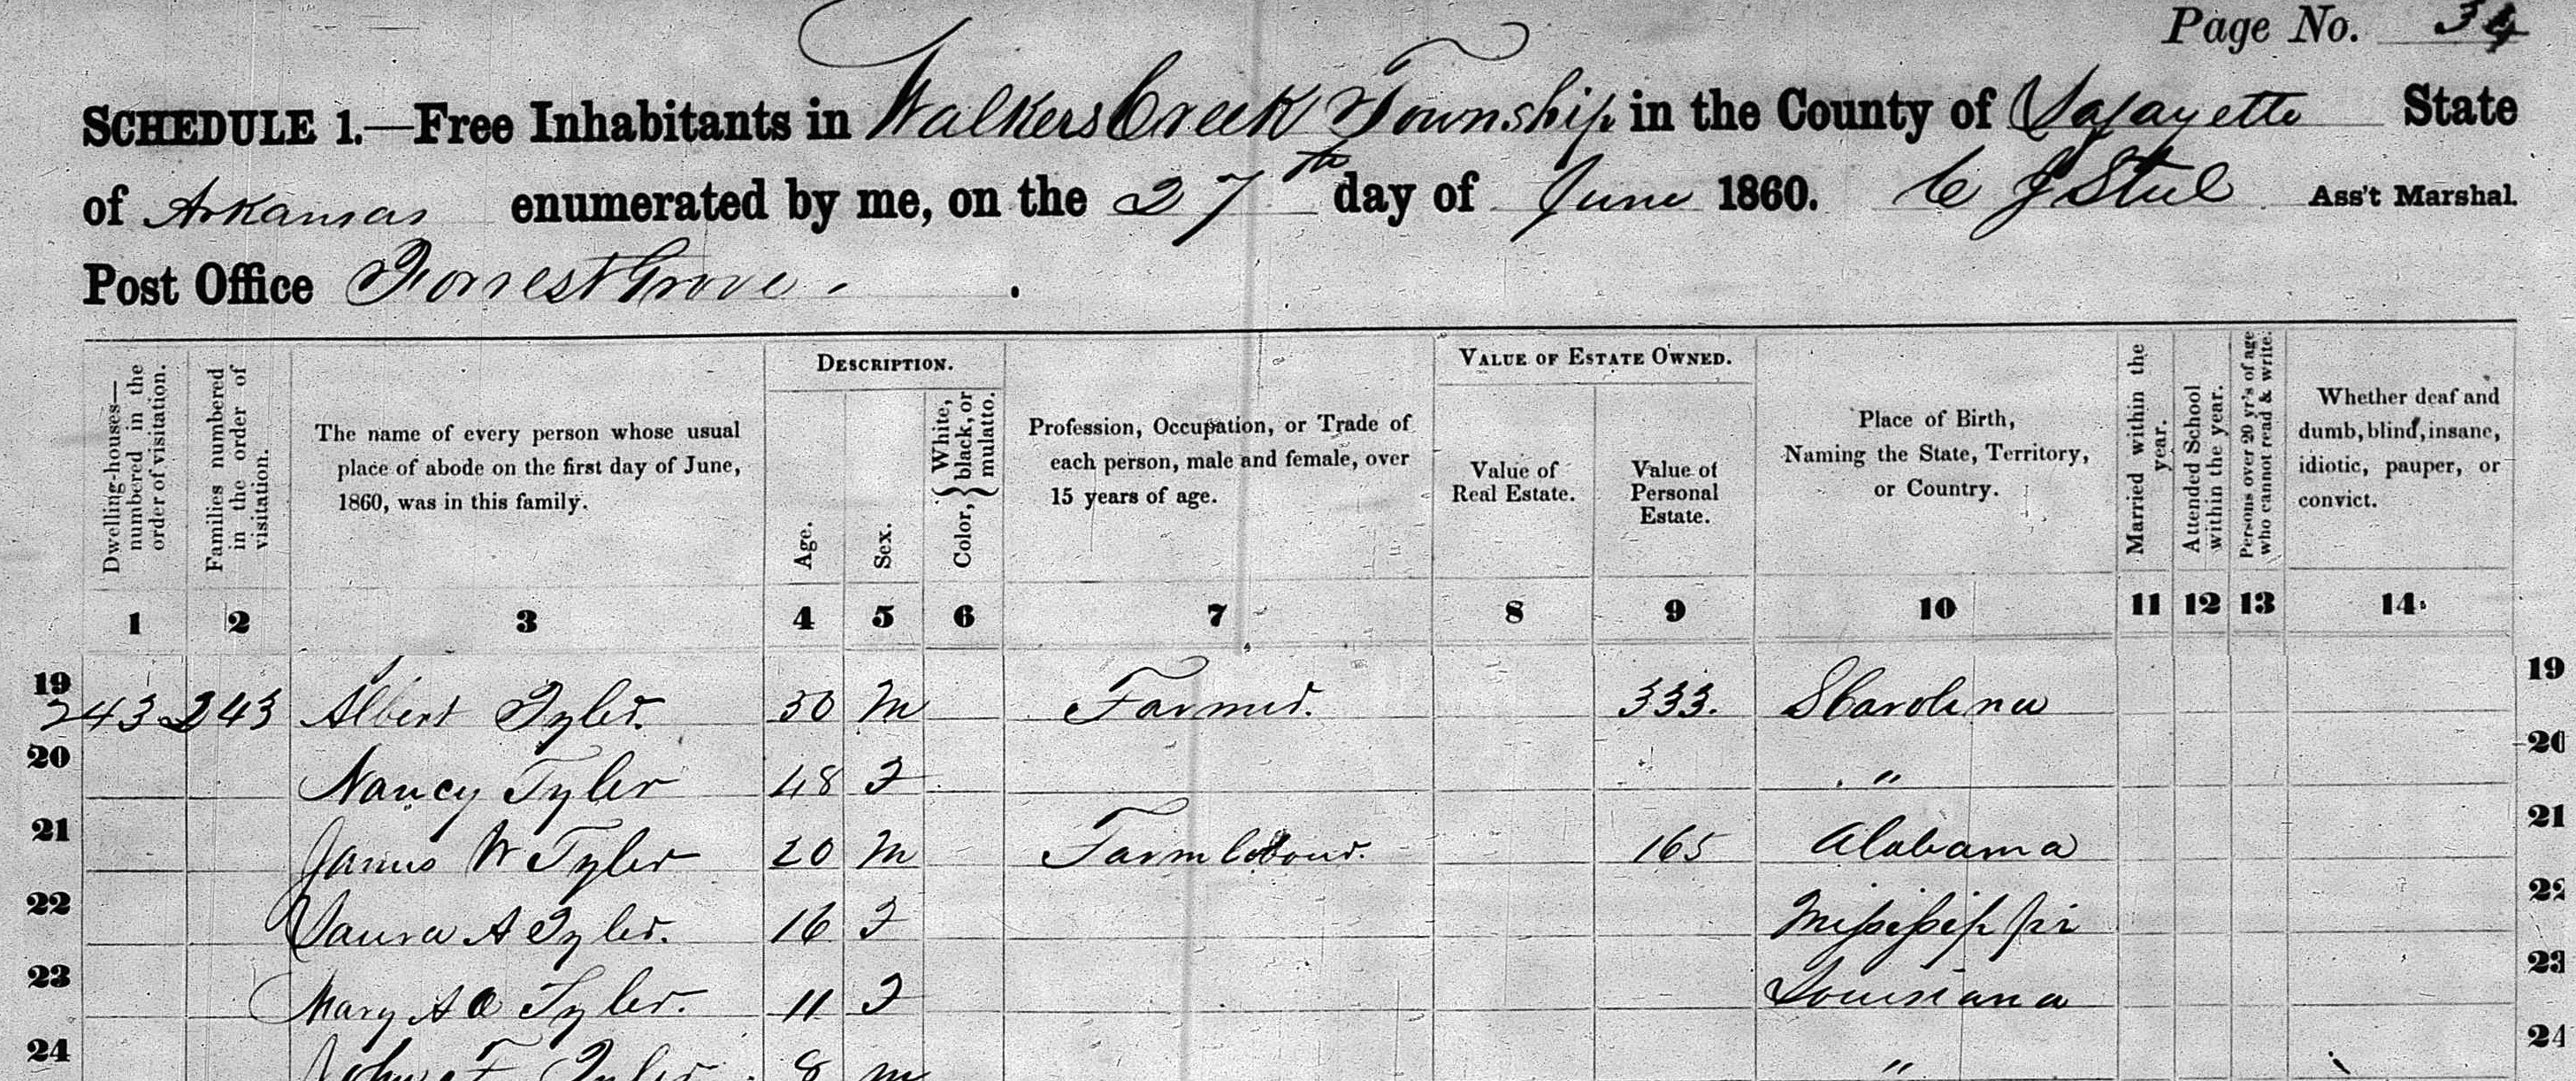 Page No. 34
SCHEDULE 1.—Free Inhabitants in Walkers Creek Township in the County of Lafayette State
of Arkansas enumerated by me, on the 27th day of June 1860. C J Steel Ass't Marshal.
Post Office Forrest Grove.
Dwelling-houses—numbered in the order of visitation.
Families numbered in the order of visitation.
The name of every person whose usual place of abode on the first day of June, 1860, was in this family.
DESCRIPTION.
Age.
Sex.
Color, { White, black, or mulatto.
Profession, Occupation, or Trade of each person, male and female, over 15 years of age.
VALUE OF ESTATE OWNED.
Value of Real Estate.
Value of Personal Estate.
Place of Birth, Naming the State, Territory, or Country.
Married within the year.
Attended School within the year.
Persons over 20 yr's of age who cannot read & write.
Whether deaf and dumb, blind, insane, idiotic, pauper, or convict.
1 2 3 4 5 6 7 8 9 10 11 12 13 14
19 243 243 Albert Tyler. 50 M Farmer. 333. S Carolina 19
20 Nancy Tyler 48 F " 20
21 James W Tyler 20 M Farm labour. 165 Alabama 21
22 Laura A Tyler. 16 F Mississippi 22
23 Mary A O Tyler. 11 F Louisiana 23
24 John F Tyler. 8 M " 24